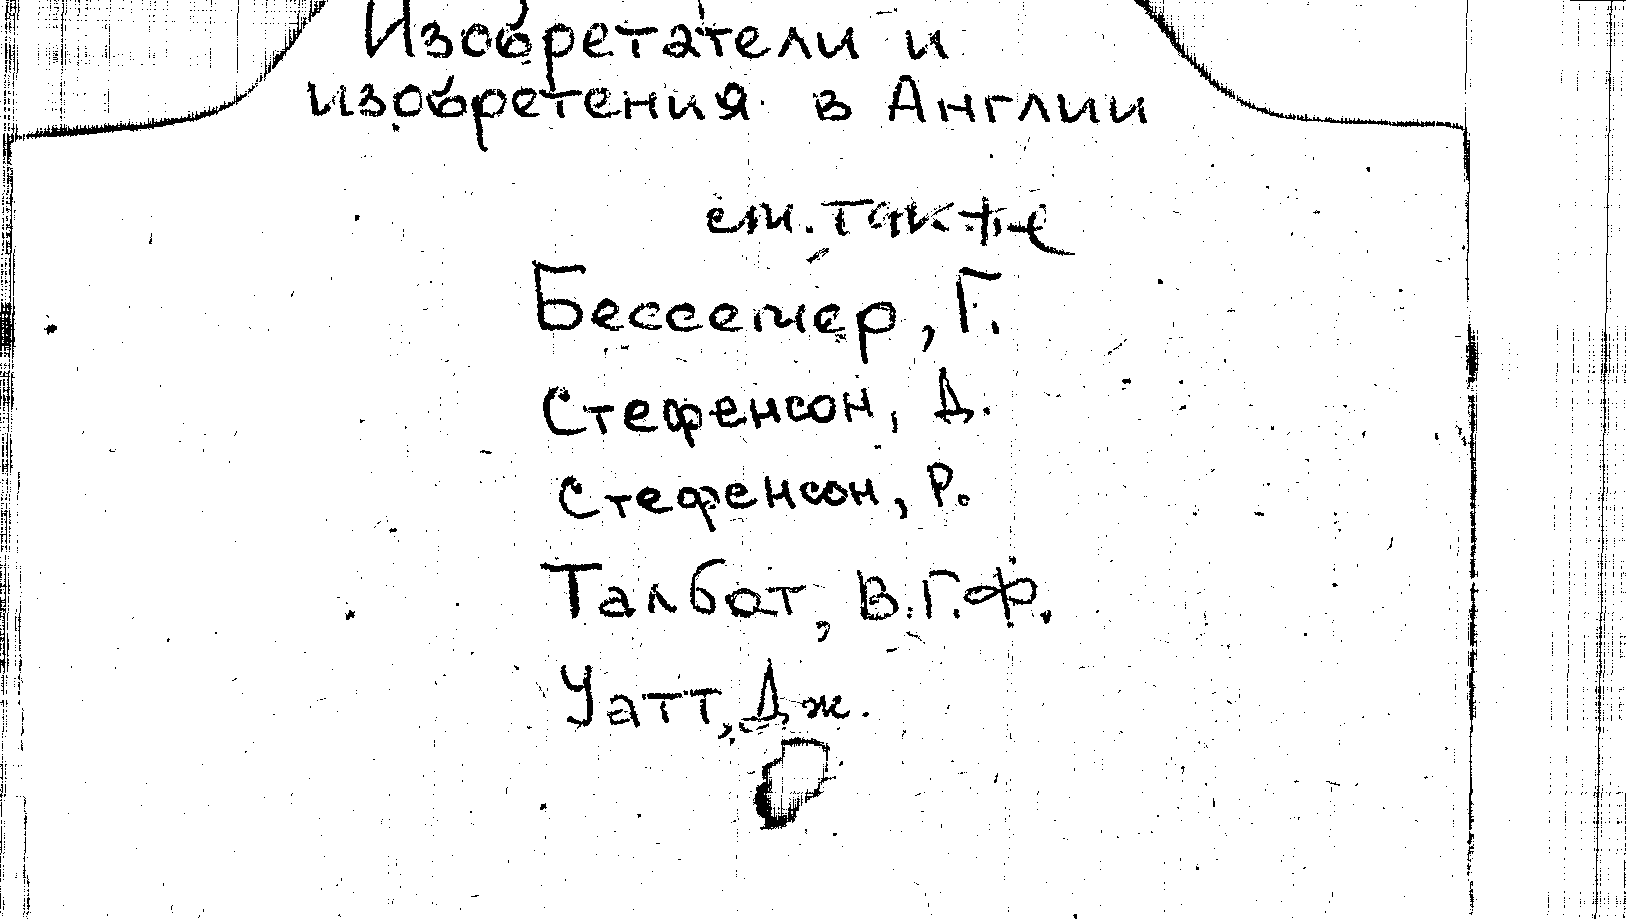 Изобретатели и
изобретения в Англии
см. также
Бессемер, Г.
Стефенсон, Д.
Стефенсон, Р.
Талбот, В.Г.Ф.
Уатт, Дж.